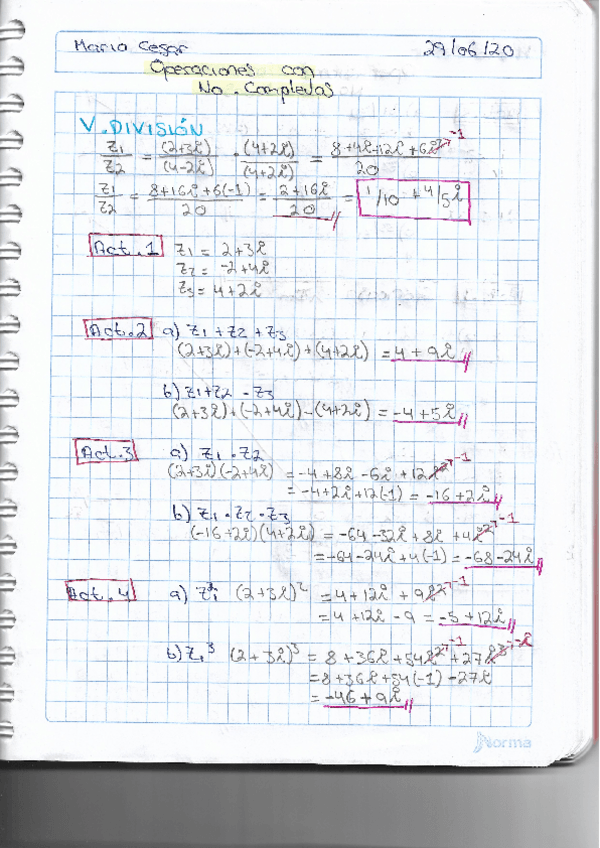 Mario Cesar 29/06/20
Operaciones con
No. Complejos
V. DIVISIÓN
z1/z2 = (2+3i)/(4-2i) · (4+2i)/(4+2i) = 8+4i+12i+6i²→-1/20
z1/z2 = 8+16i+6(-1)/20 = 2+16i/20 = 1/10 + 4/5i
Act. 1 z1 = 2+3i
z2 = -2+4i
z3 = 4+2i
Act. 2 a) z1 + z2 + z3
(2+3i)+(-2+4i)+(4+2i) = 4+9i
b) z1+z2 - z3
(2+3i)+(-2+4i)-(4+2i) = -4+5i
Act. 3 a) z1 · z2
(2+3i)(-2+4i) = -4+8i-6i+12i²→-1
= -4+2i+12(-1) = -16+2i
b) z1 · z2 · z3
(-16+2i)(4+2i) = -64-32i+8i+4i²→-1
= -64-24i+4(-1) = -68-24i
Act. 4 a) z1² (2+3i)² = 4+12i+9i²→-1
= 4+12i-9 = -5+12i
b) z1³ (2+3i)³ = 8+36i+54i²→-1+27i³→-i
= 8+36i+54(-1)-27i
= -46+9i
Norma